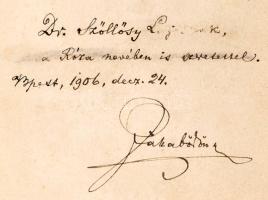 Dr. Szöllősy
a Róza nevében is szeretettel.
Bpest, 1906, decz. 24.
Jakab Ödön